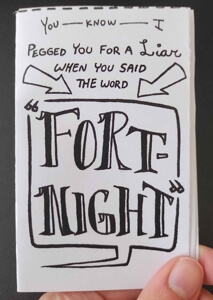 YOU — KNOW — I
PEGGED YOU FOR A Liar
WHEN YOU SAID
THE WORD
"FORT-
NIGHT"